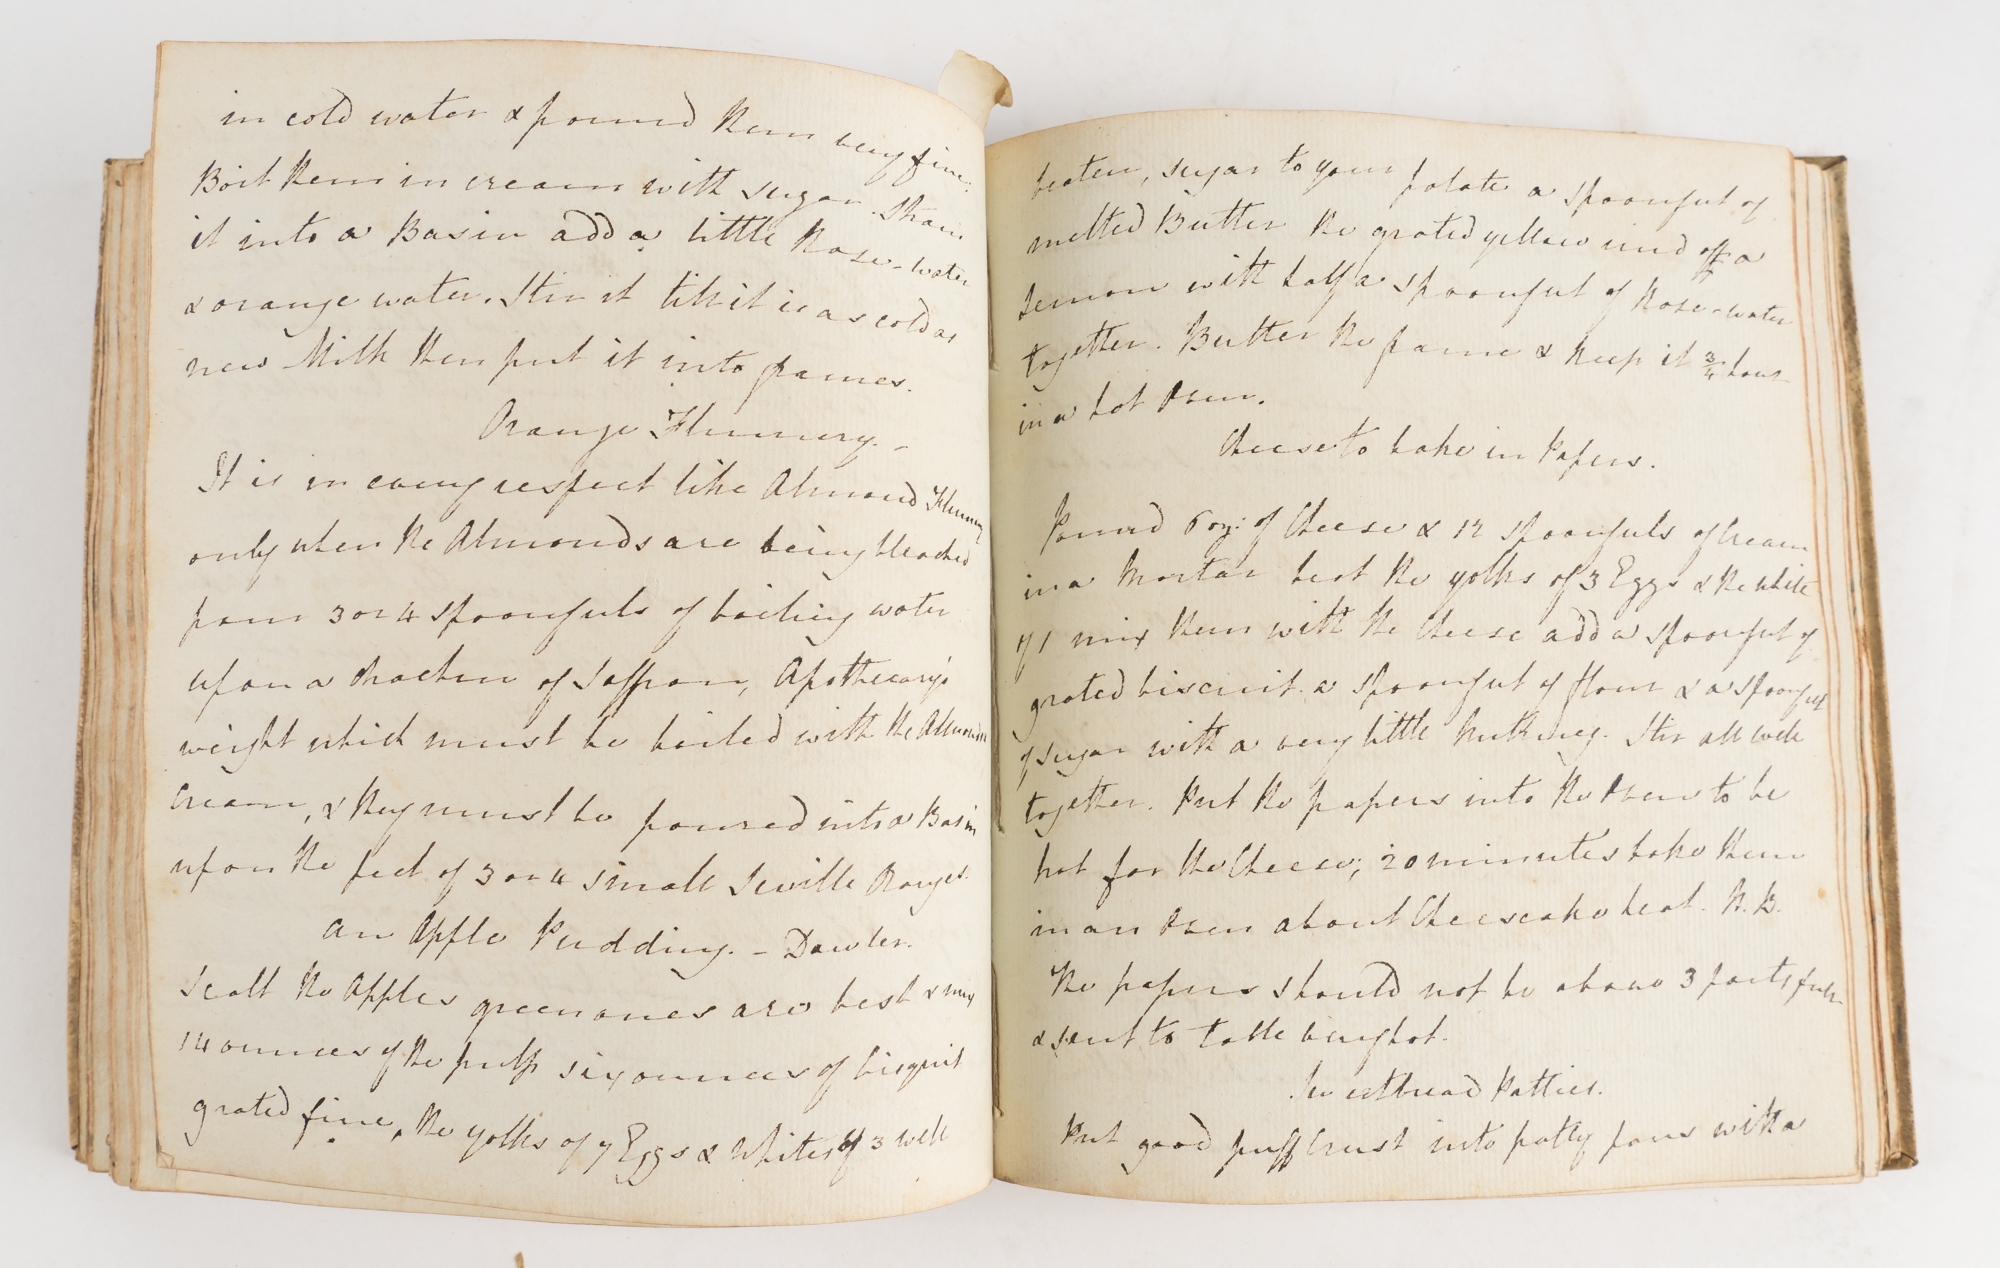 in cold water & pound them very fine.
Boil them in cream with sugar. Strain
it into a Basin add a little Rose-water
& orange water. Stir it till it is as cold as
new Milk then put it into frames.
Orange Flummery. _
It is in every respect like Almond Flummery
only when the Almonds are being bleached
pour 3 or 4 spoonfuls of boiling water
upon a drachm of Saffron, Apothecary's
weight which must be boiled with the Almonds
Cream, & they must be poured into a Basin
upon the peel of 3 or 4 small Seville Oranges.
An Apple Pudding. _ Dawler.
Scald the Apples green ones are best & mix
14 ounces of the pulp six ounces of bisquit
grated fine, the yolks of 7 Eggs & whites of 3 well
beaten, sugar to your palate a spoonful of
melted Butter the grated yellow rind off a
Lemon with half a spoonful of Rose-water
together. Butter the frame & keep it 3/4 hour
in a hot Oven.
Cheese to bake in Papers.
Pound 6 oz: of Cheese & 12 spoonfuls of Cream
in a Mortar beat the yolks of 3 Eggs & the white
of 1 mix them with the Cheese add a spoonful of
grated biscuit a spoonful of flour & a spoonful
of sugar with a very little Nutmeg. Stir all well
together. Put the papers into the Oven to be
hot for the Cheese; 20 minutes bake them
in an Oven about Cheesecake heat. N.B.
The papers should not be above 3 parts full
& sent to Table very hot.
Sweetbread Patties.
Put good puff Crust into patty pans with a